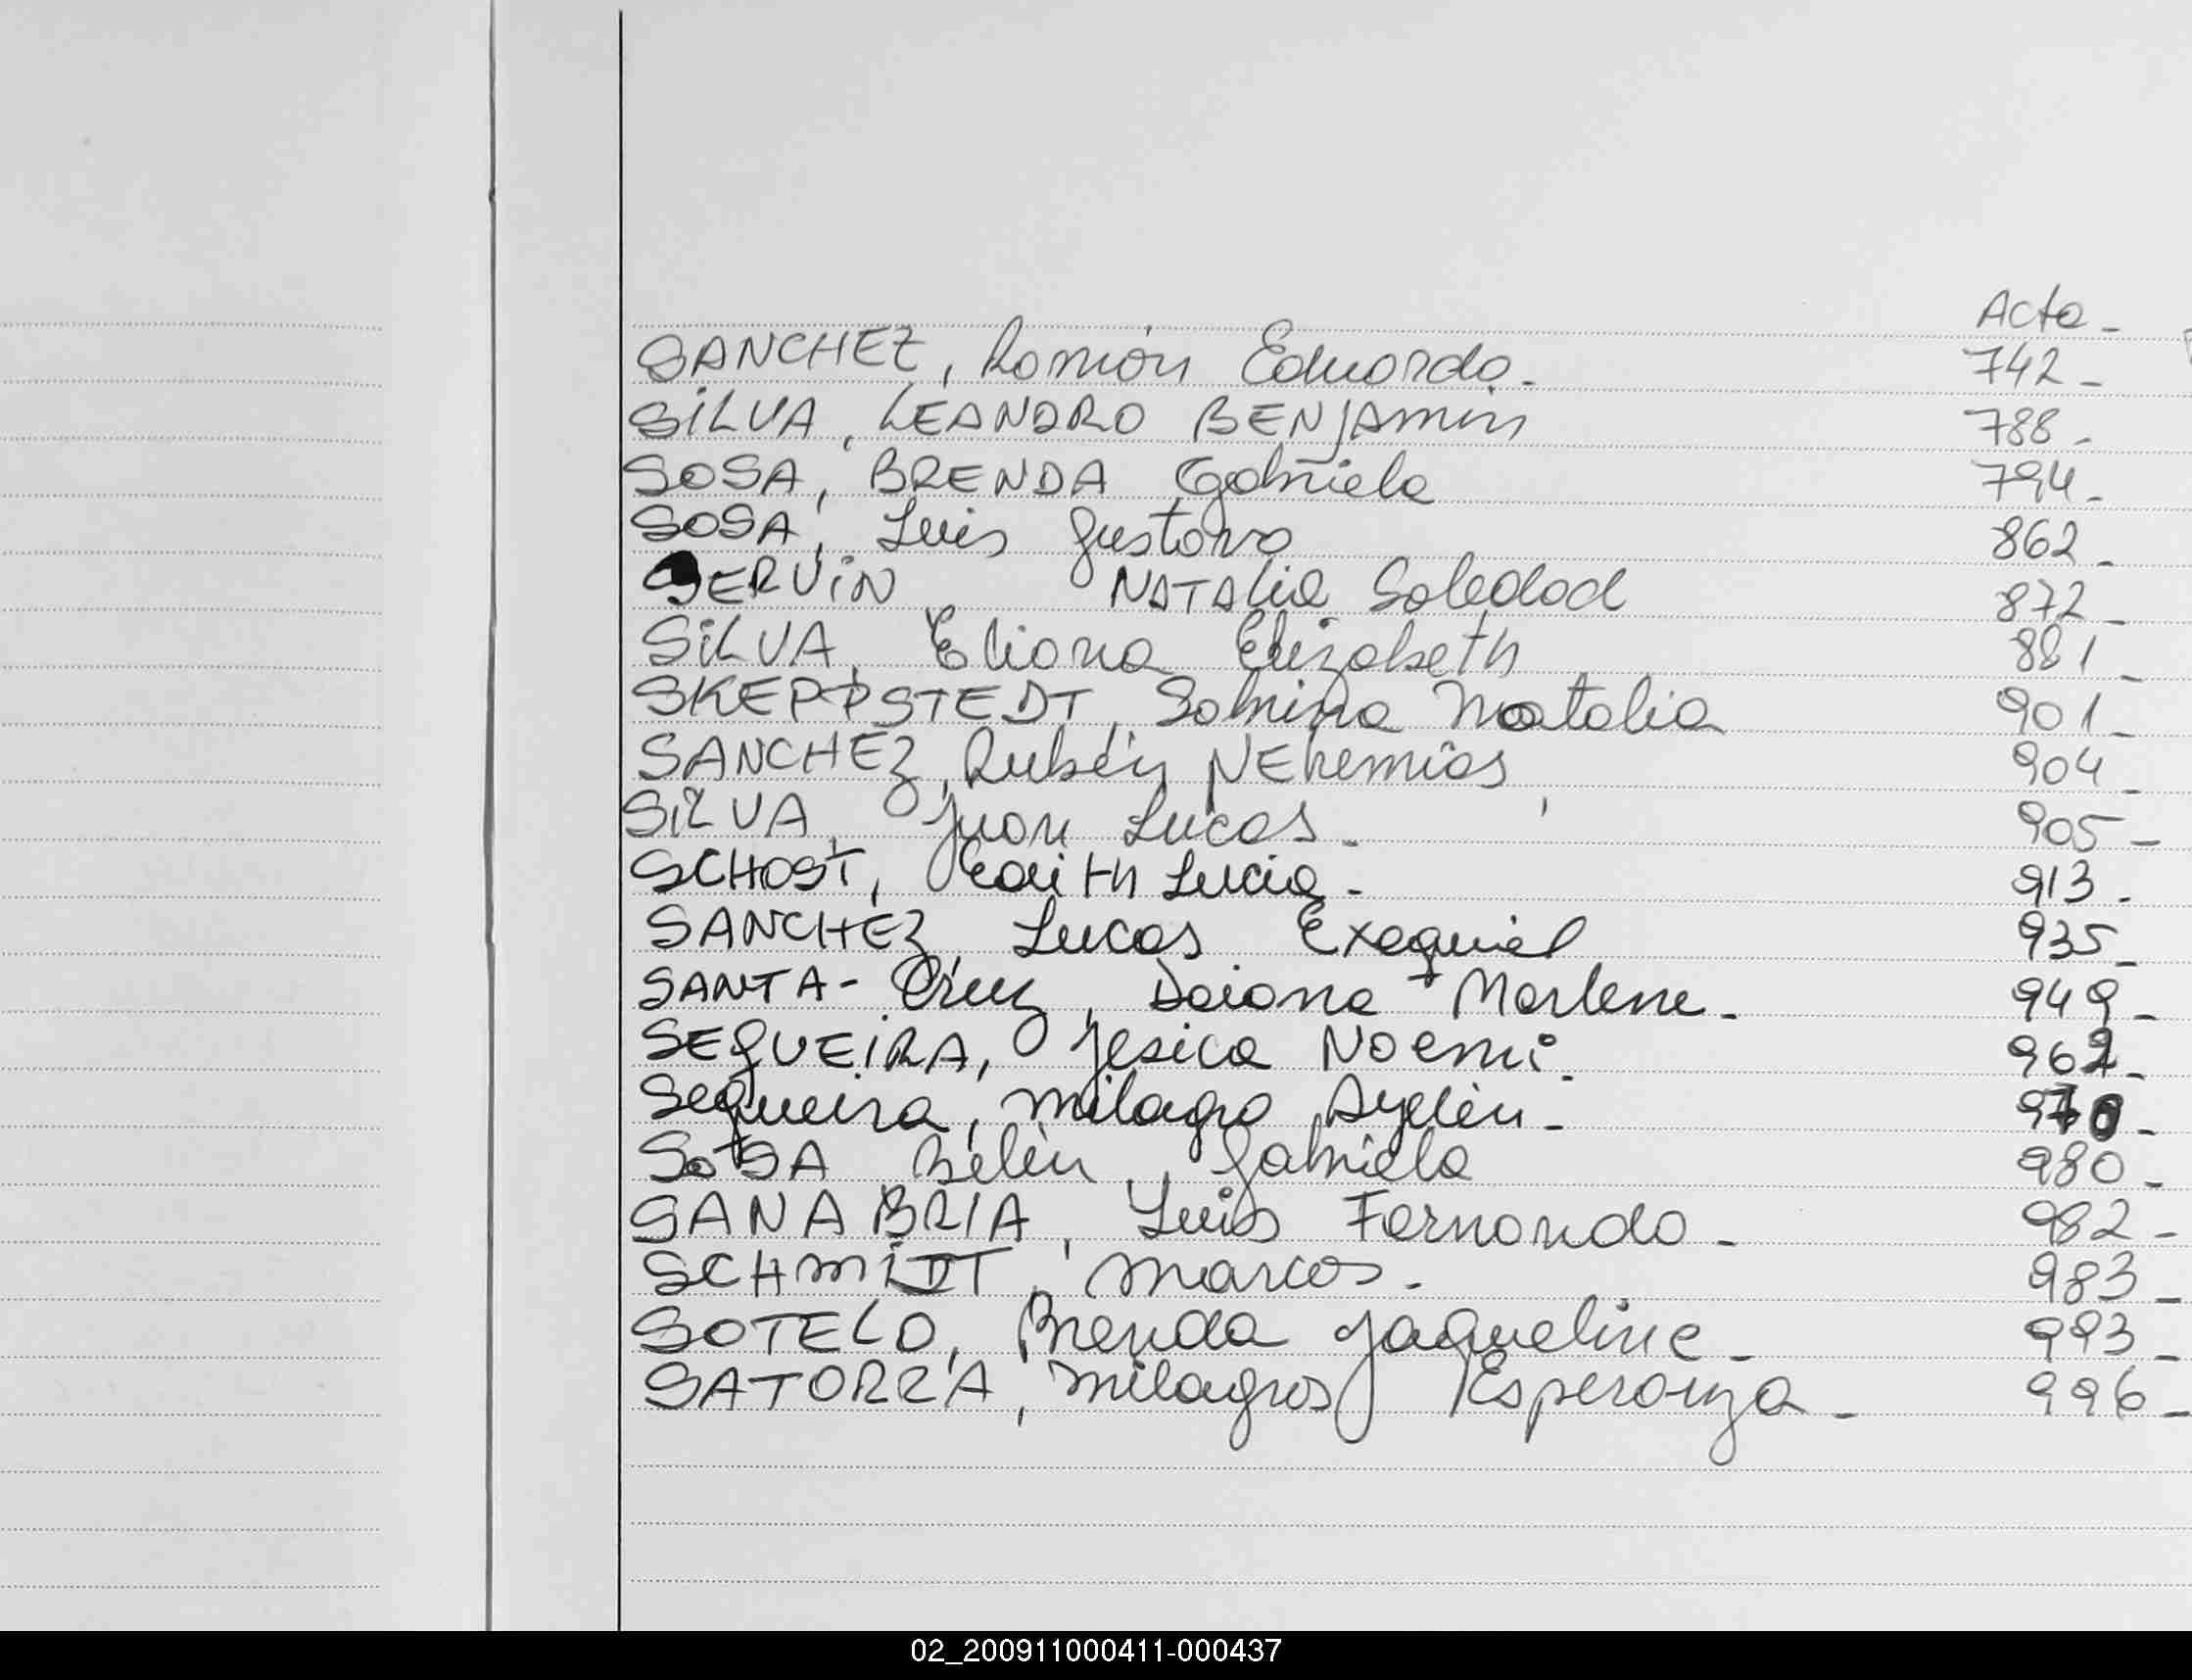 Acta -
SANCHEZ, Román Eduardo. 742 -
SILVA, LEANDRO BENJAMIN 788 -
SOSA, BRENDA Gabriela 794 -
SOSA, Luis Gustavo 862 -
SERVIN NATALIA Soledad 872 -
SILVA, Eliana Elizabeth 881 -
SKEPPSTEDT, Sabrina Natalia 901 -
SANCHEZ, Rubén NEhemias 904 -
SILVA, Juan Lucas - 905 -
SCHOST, Edith Lucia - 913 -
SANCHEZ Lucas Exequiel 935 -
SANTA - Cruz, Daiana Marlene - 949 -
SEQUEIRA, Jesica Noemi - -
Sequeira, Milagro Ayelén - 970 -
SOSA Belén Gabriela 980 -
SANABRIA, Luis Fernando - 982 -
SCHMIDT, Marcos - 983 -
SOTELO, Brenda Jaqueline - 993 -
Milagros Esperanza - 996 -
02_200911000411-000437